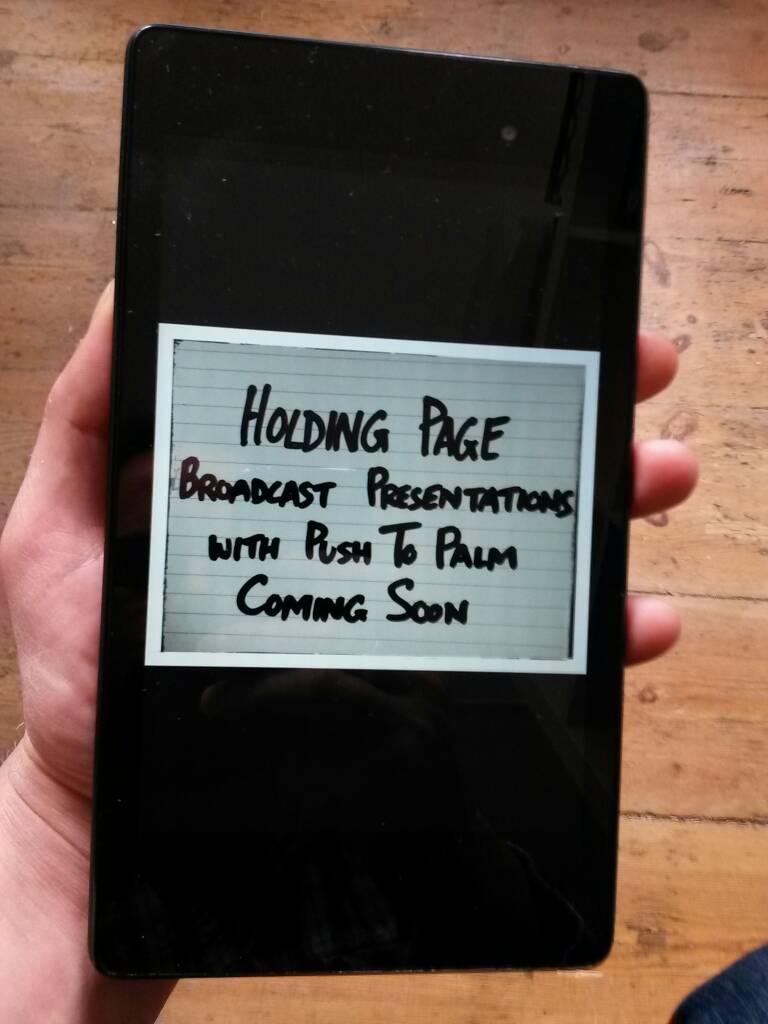 HOLDING PAGE
BROADCAST PRESENTATIONS
WITH PUSH TO PALM
COMING SOON